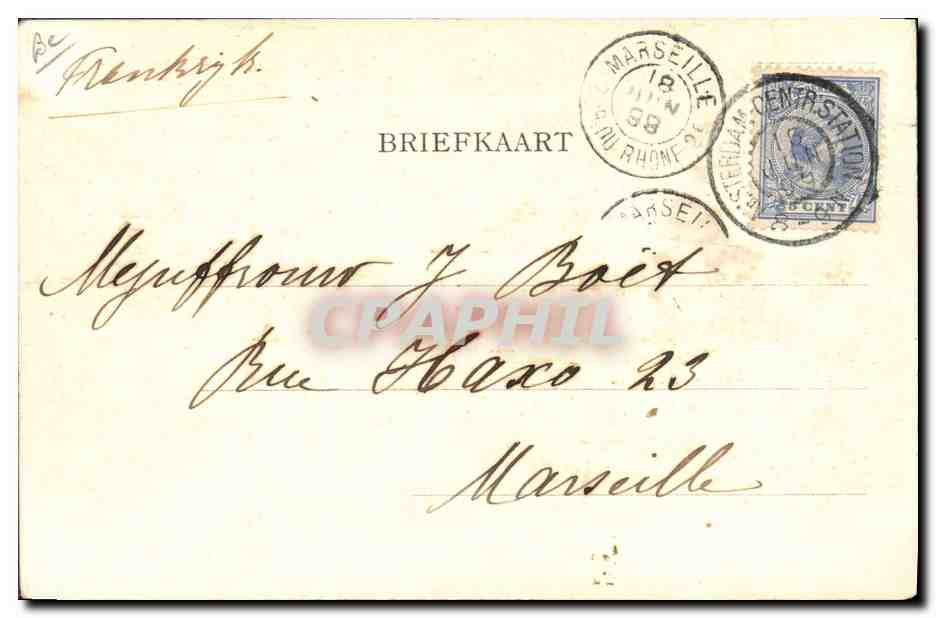 Be/
Frankrijk.
MARSEILLE
18
JUIN
98
B. DU RHONE
AMSTERDAM-CENTR:STATION
5 CENT
BRIEFKAART
MARSEI
Mejuffrouw J. Boët
CPAPHIL
Rue Haxo 23
Marseille